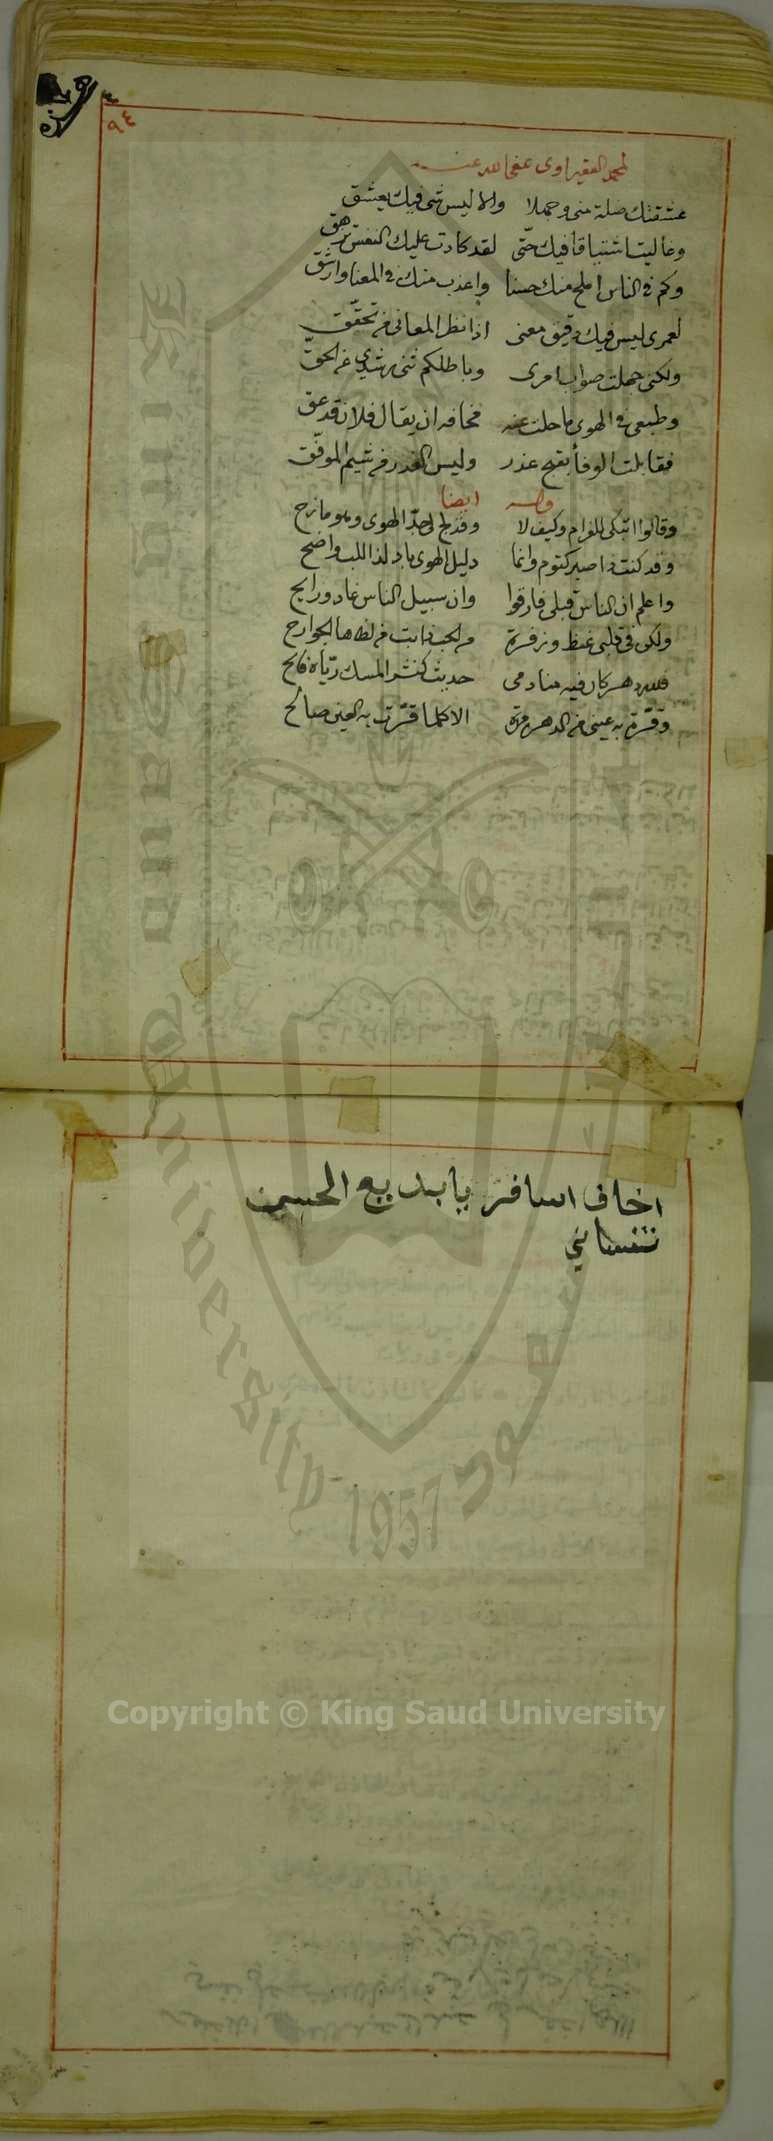 ٩٤
لمحمد الفقيراوى عفى الله عنه
عشقتك ضلة منى وجهلا والا ليس شى فيك يعشق
وغاليت اشتياقا فيك حتى لقد كادت عليك النفس تزهق
وكم فى الناس املح منك حسنا واعذب منك فى المعنا وارشق
لعمرى ليس فيك دقيق معنى اذا نظر المعانى من تحقق
ولكنى جهلت صواب امرى وباطلكم ثنى رشدي عن الحق
وطبعى فى الهوى ما حلت عنه مخافه ان يقال فلان قد عق
فقابلت الوفا بقبح عذر وليس الغدر من شيم الموفق
وله ايضا
وقالوا اتبكى للغرام وكيف لا وقد لج لى جد الهوى وهو مازح
وقد كنت ذا صبر كتوم وانما دليل الهوى باد لذا اللب واضح
واعلم ان الناس قبلى فارقوا وان سبيل الناس غاد ورايح
ولكن فى قلبى غيظ وزفرة من الحب ذابت من لظاها الجوارح
فلله دهر كان فيه منادمى حديث كنشر المسك رياه فايح
وقرة به عينى من الدهر مرة الا كلما قرت به العين صالح
اخاف اسافر يا بديع الحسن
تنساني
King Saud University
1957
Copyright © King Saud University